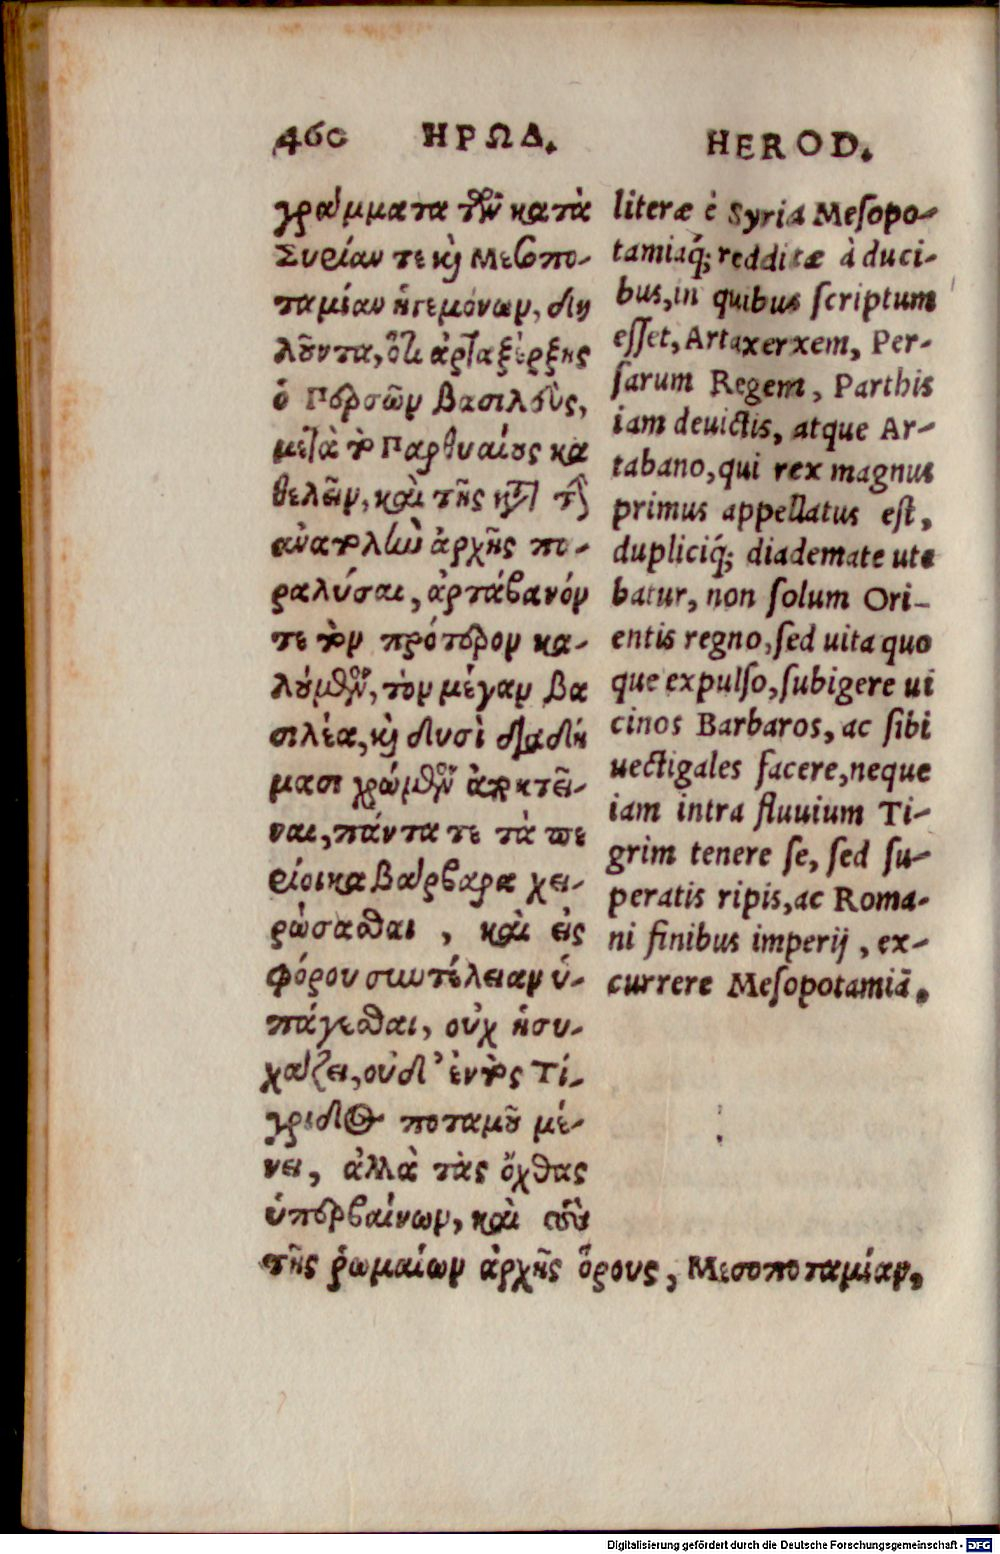 460 ΗΡΩΔ. HEROD.
γράμματα τῶν κατὰ
Συρίαν τε κỳ Μεσοπο-
ταμίαν ἡγεμόνων, δη
λοῦντα, ὅτι ἀρταξέρξης
ὁ Περσῶν βασιλεὺς,
μετὰ τὸ Παρθυαίους κα
θελεῖν, καὶ τῆς κατὰ τὴν
ἀνατολὴν ἀρχῆς πα-
ραλύσαι, ἀρτάβανόν
τε τὸν πρότερον κα-
λούμενον, τὸν μέγαν βα
σιλέα, κỳ δυσὶ διαδή
μασι χρώμενον ἀποκτεῖ-
ναι, πάντα τε τὰ πε
ρίοικα βάρβαρα χει-
ρώσασθαι, καὶ εἰς
φόρου συντέλειαν ὑ-
πάγεσθαι, οὐχ ἡσυ-
χάζει, οὐδ' ἐντὸς Τί-
γριδος ποταμοῦ μέ-
νει, ἀλλὰ τὰς ὄχθας
ὑπερβαίνων, καὶ τοὺς
τῆς ῥωμαίων ἀρχῆς ὅρους, Μεσοποταμίαν,
literæ è Syria Meſopo-
tamiaq́; redditæ à duci-
bus, in quibus ſcriptum
eſſet, Artaxerxem, Per-
ſarum Regem, Parthis
iam deuictis, atque Ar-
tabano, qui rex magnus
primus appellatus eſt,
dupliciq́; diademate ute
batur, non ſolum Ori-
entis regno, ſed uita quo
que expulſo, ſubigere ui
cinos Barbaros, ac ſibi
uectigales facere, neque
iam intra fluuium Ti-
grim tenere ſe, ſed ſu-
peratis ripis, ac Roma-
ni finibus imperij, ex-
currere Meſopotamiã.
Digitalisierung gefördert durch die Deutsche Forschungsgemeinschaft - DFG